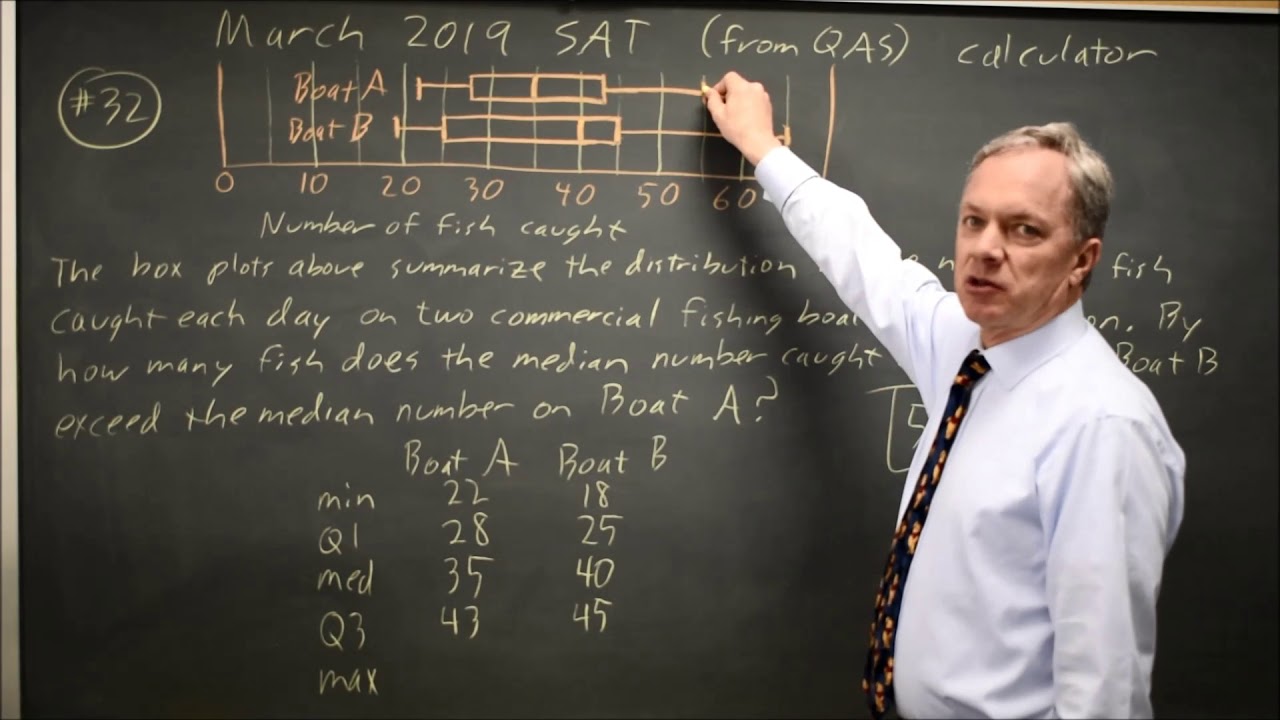 March 2019 SAT (from QAS) calculator
#32
Boat A
Boat B
0 10 20 30 40 50 60
Number of fish caught
The box plots above summarize the distribution fish
caught each day on two commercial fishing boat By
how many fish does the median number caught Boat B
exceed the median number on Boat A?
5
Boat A Boat B
min 22 18
Q1 28 25
med 35 40
Q3 43 45
max